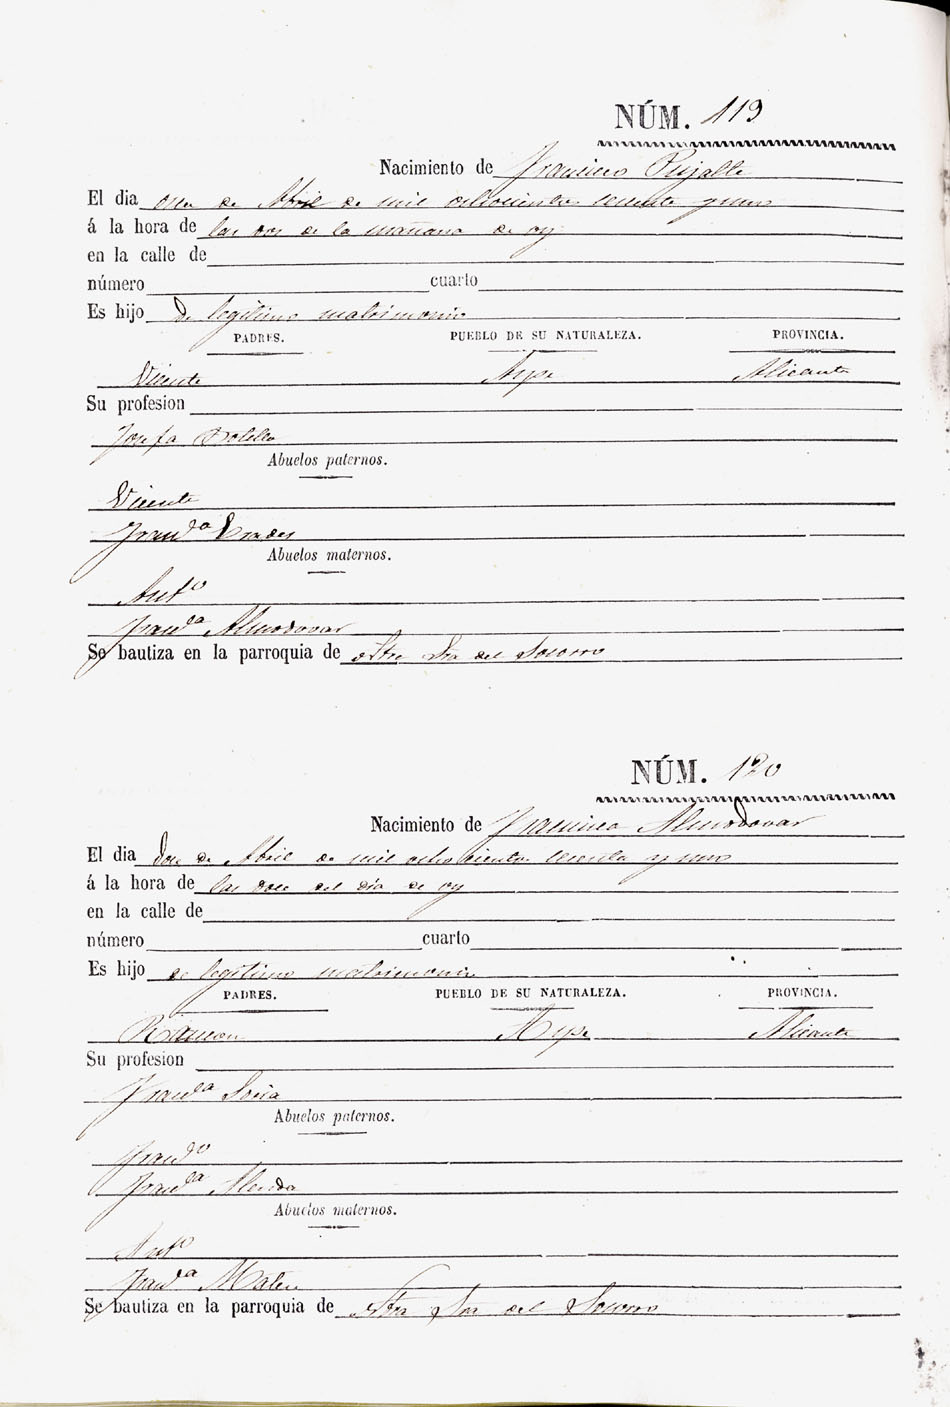 NÚM. 119
Nacimiento de Francisco Pujalte
El dia once de Abril de mil ochocientos sesenta y uno
á la hora de las dos de la mañana de oy
en la calle de
número cuarto
Es hijo de legitimo matrimonio
PADRES. PUEBLO DE SU NATURALEZA. PROVINCIA.
Vicente Aspe Alicante
Su profesion
Josefa Botella
Abuelos paternos.
Vicente
Franca Prades
Abuelos maternos.
Anto
Franca Almodovar
Se bautiza en la parroquia de Ntra Sra del Socorro
NÚM. 120
Nacimiento de Francisca Almodovar
El dia doce de Abril de mil ochocientos sesenta y uno
á la hora de las doce del dia de oy
en la calle de
número cuarto
Es hijo de legitimo matrimonio
PADRES. PUEBLO DE SU NATURALEZA. PROVINCIA.
Ramon Aspe Alicante
Su profesion
Franca Soria
Abuelos paternos.
Franco
Franca
Abuelos maternos.
Anto
Franca Mateu
Se bautiza en la parroquia de Ntra Sra del Socorro